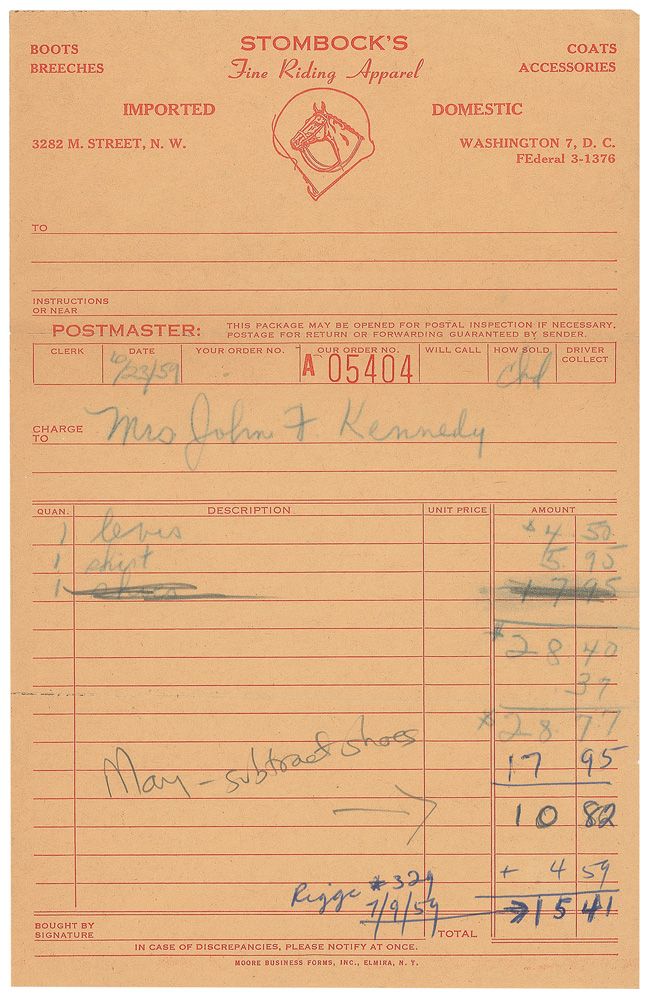 BOOTS STOMBOCK'S COATS
BREECHES Fine Riding Apparel ACCESSORIES
IMPORTED DOMESTIC
3282 M. STREET, N. W. WASHINGTON 7, D. C.
FEderal 3-1376
TO
INSTRUCTIONS
OR NEAR
POSTMASTER: THIS PACKAGE MAY BE OPENED FOR POSTAL INSPECTION IF NECESSARY.
POSTAGE FOR RETURN OR FORWARDING GUARANTEED BY SENDER.
CLERK DATE YOUR ORDER NO. OUR ORDER NO. WILL CALL HOW SOLD DRIVER COLLECT
10/23/59 A 05404 Chd
CHARGE TO Mrs John F Kennedy
QUAN. DESCRIPTION UNIT PRICE AMOUNT
1 levis $4 50
1 shirt 5 95
1 shoes 17 95
$28 40
.37
$28 77
May - subtract shoes 17 95
10 82
+ 4 59
Riggs #329
7/9/59 → 15 41
BOUGHT BY
SIGNATURE TOTAL
IN CASE OF DISCREPANCIES, PLEASE NOTIFY AT ONCE.
MOORE BUSINESS FORMS, INC., ELMIRA, N. Y.